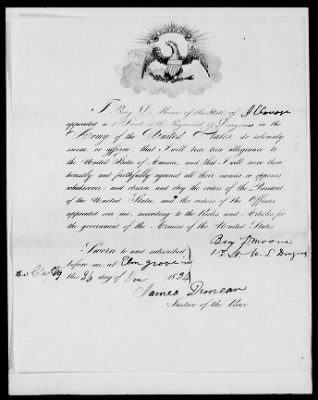 I Benj D. Moore of the State of Illinois
appointed a 1st Lieut in the Regiment of Dragoons in the
Army of the United States, do solemnly
swear, or affirm, that I will bear true allegiance to
the United States of America, and that I will serve them
honestly and faithfully against all their enemies or opposers
whatsoever; and observe and obey the orders of the President
of the United States, and the orders of the Officers
appointed over me, according to the Rules and Articles for
the government of the Armies of the United States.
Benj D. Moore
1st Lt U. S. Dragoons
Sworn to and subscribed
before me, at Elm grove
this 26 day of 183
James Duncan
Justice of the Peace